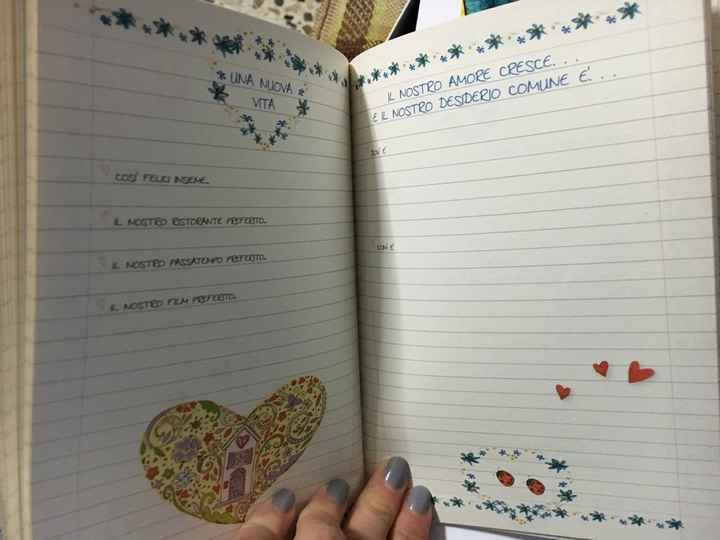 UNA NUOVA
VITA
COSÌ FELICI INSIEME...
IL NOSTRO RISTORANTE PREFERITO...
IL NOSTRO PASSATEMPO PREFERITO...
IL NOSTRO FILM PREFERITO...
IL NOSTRO AMORE CRESCE. . .
E IL NOSTRO DESIDERIO COMUNE E'. . .